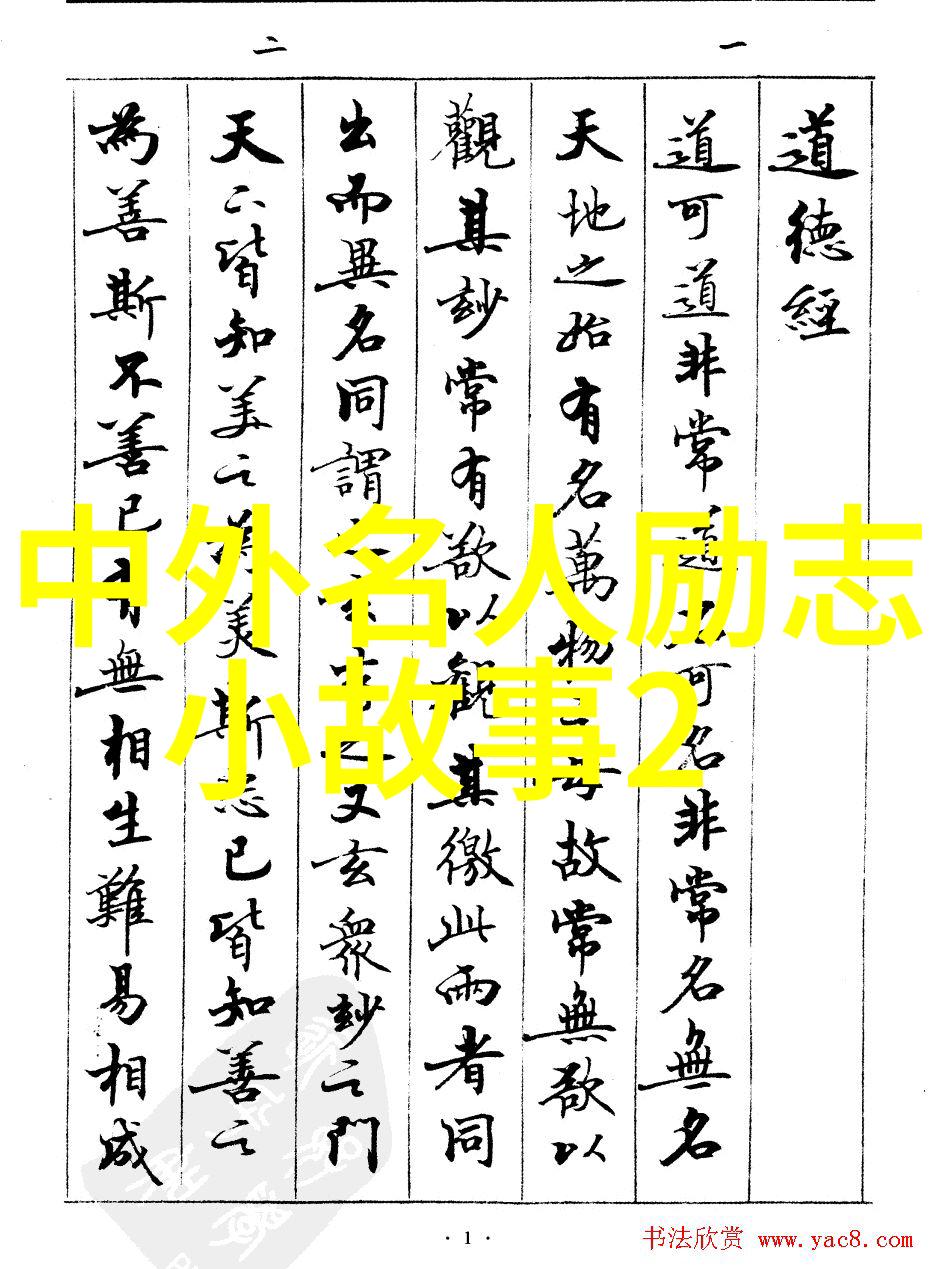 一
道德經
道可道非常道名可名非常名無名
天地之始有名萬物之母故常無欲以
觀其玅常有欲以觀其徼此兩者同
出而異名同謂之玄玄之又玄眾玅之門
二
天下皆知美之為美斯惡已皆知善之
為善斯不善已有無相生難易相成
中外名人励志
小故事2
· 1 ·
书法欣赏 www.yac8.com